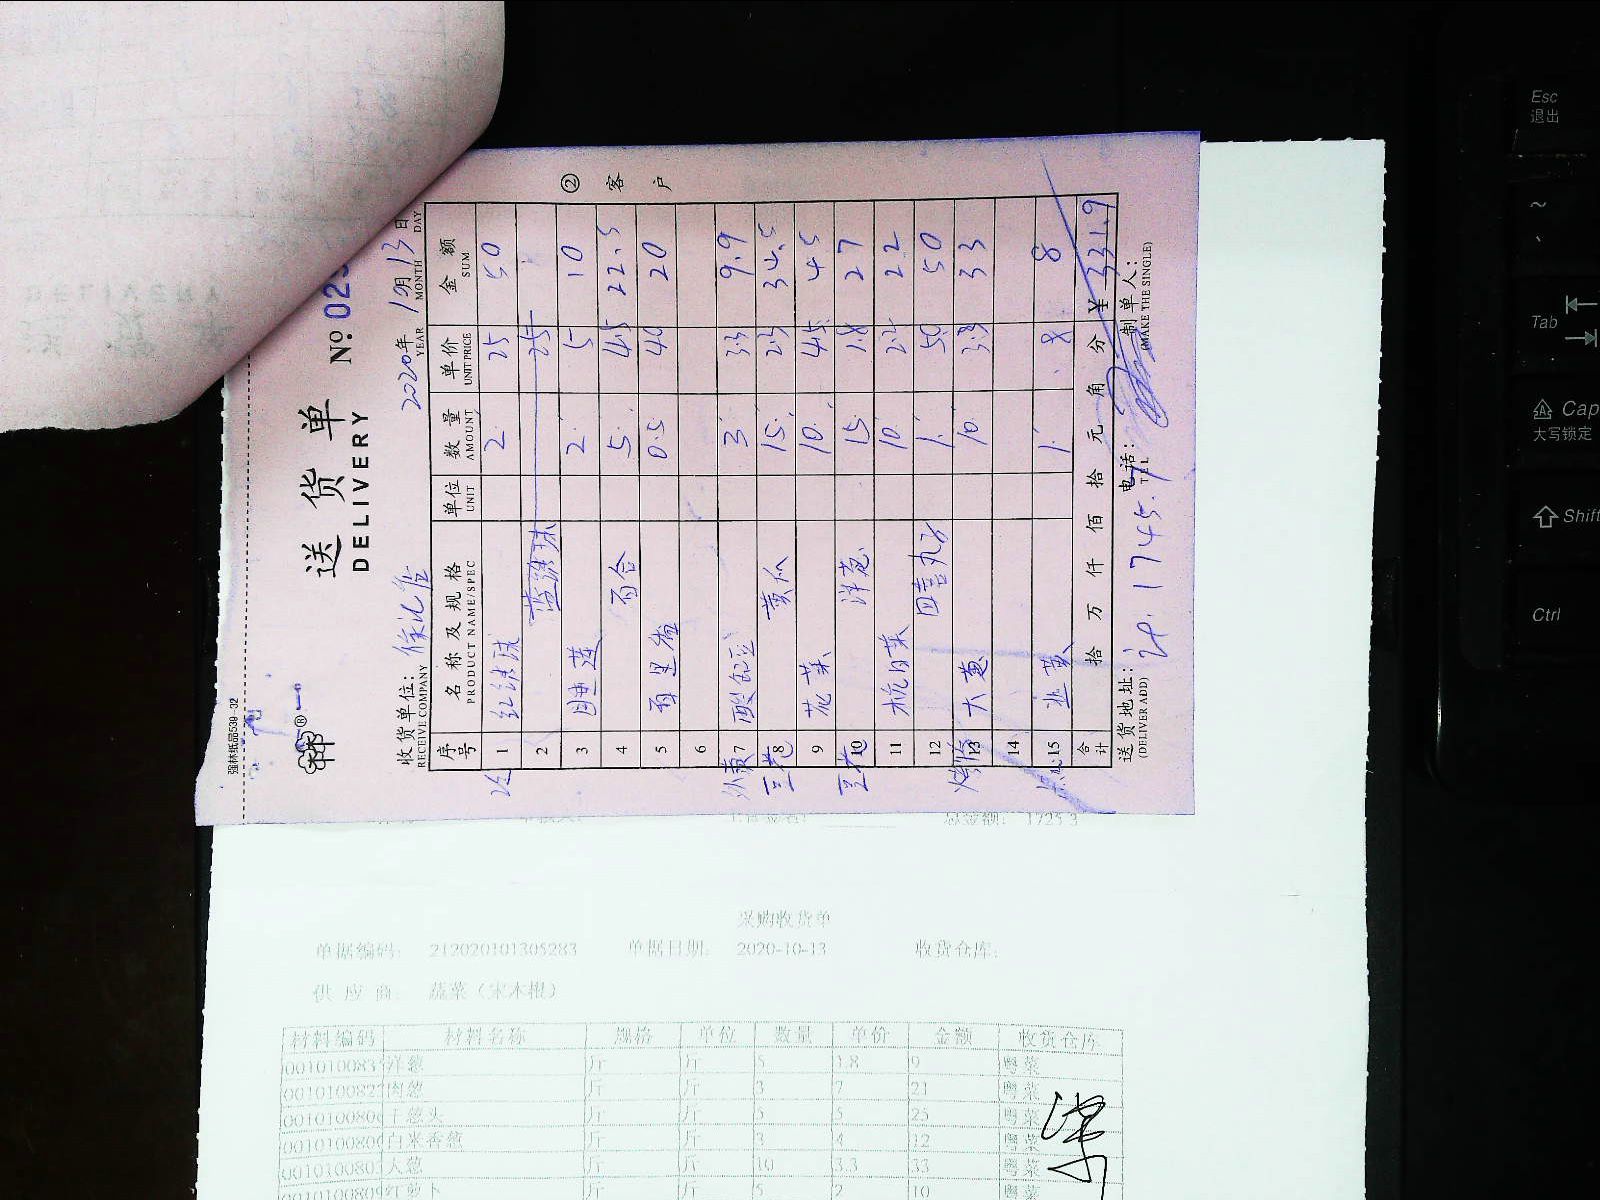 送货单
DELIVERY
№ 02
强林纸品539-32
② 客户
收货单位:
RECEIVE COMPANY
2020年 10月13日
YEAR MONTH DAY
序号 名称及规格 单位 数量 单价 金额
PRODUCT NAME/SPEC UNIT AMOUNT UNIT PRICE SUM
1 红绣球 2 25 50
2 25
3 睡莲 2 5 10
4 百合 5 4.5 22.5
5 0.5 40 20
6
7 3 3.3 9.9
8 黄瓜 15 2.3 34.5
9 花菜 10 4.5 45
10 洋葱 15 1.8 27
11 杭白菜 10 2.2 22
12 四喜丸子 1 50 50
13 大葱 10 3.3 33
14
15 韭黄 1 8 8
合计 拾 万 仟 佰 拾 元 角 分 ¥ 331.9
送货地址: 电话: 制单人:
(DELIVER ADD) TEL (MAKE THE SINGLE)
1745.7
总金额: 1725.3
采购收货单
单据编码: 212020101305283 单据日期: 2020-10-13 收货仓库:
供 应 商: 蔬菜(宋木根)
材料编码 材料名称 规格 单位 数量 单价 金额 收货仓库
洋葱 斤 斤 5 1.8 9 粤菜
肉葱 斤 斤 3 7 21 粤菜
干葱头 斤 斤 5 5 25 粤菜
白米香葱 斤 斤 3 4 12 粤菜
大葱 斤 斤 10 3.3 33 粤菜
红萝卜 斤 斤 5 2 10
Esc
退出
~
Tab
Cap
大写锁定
Shift
Ctrl